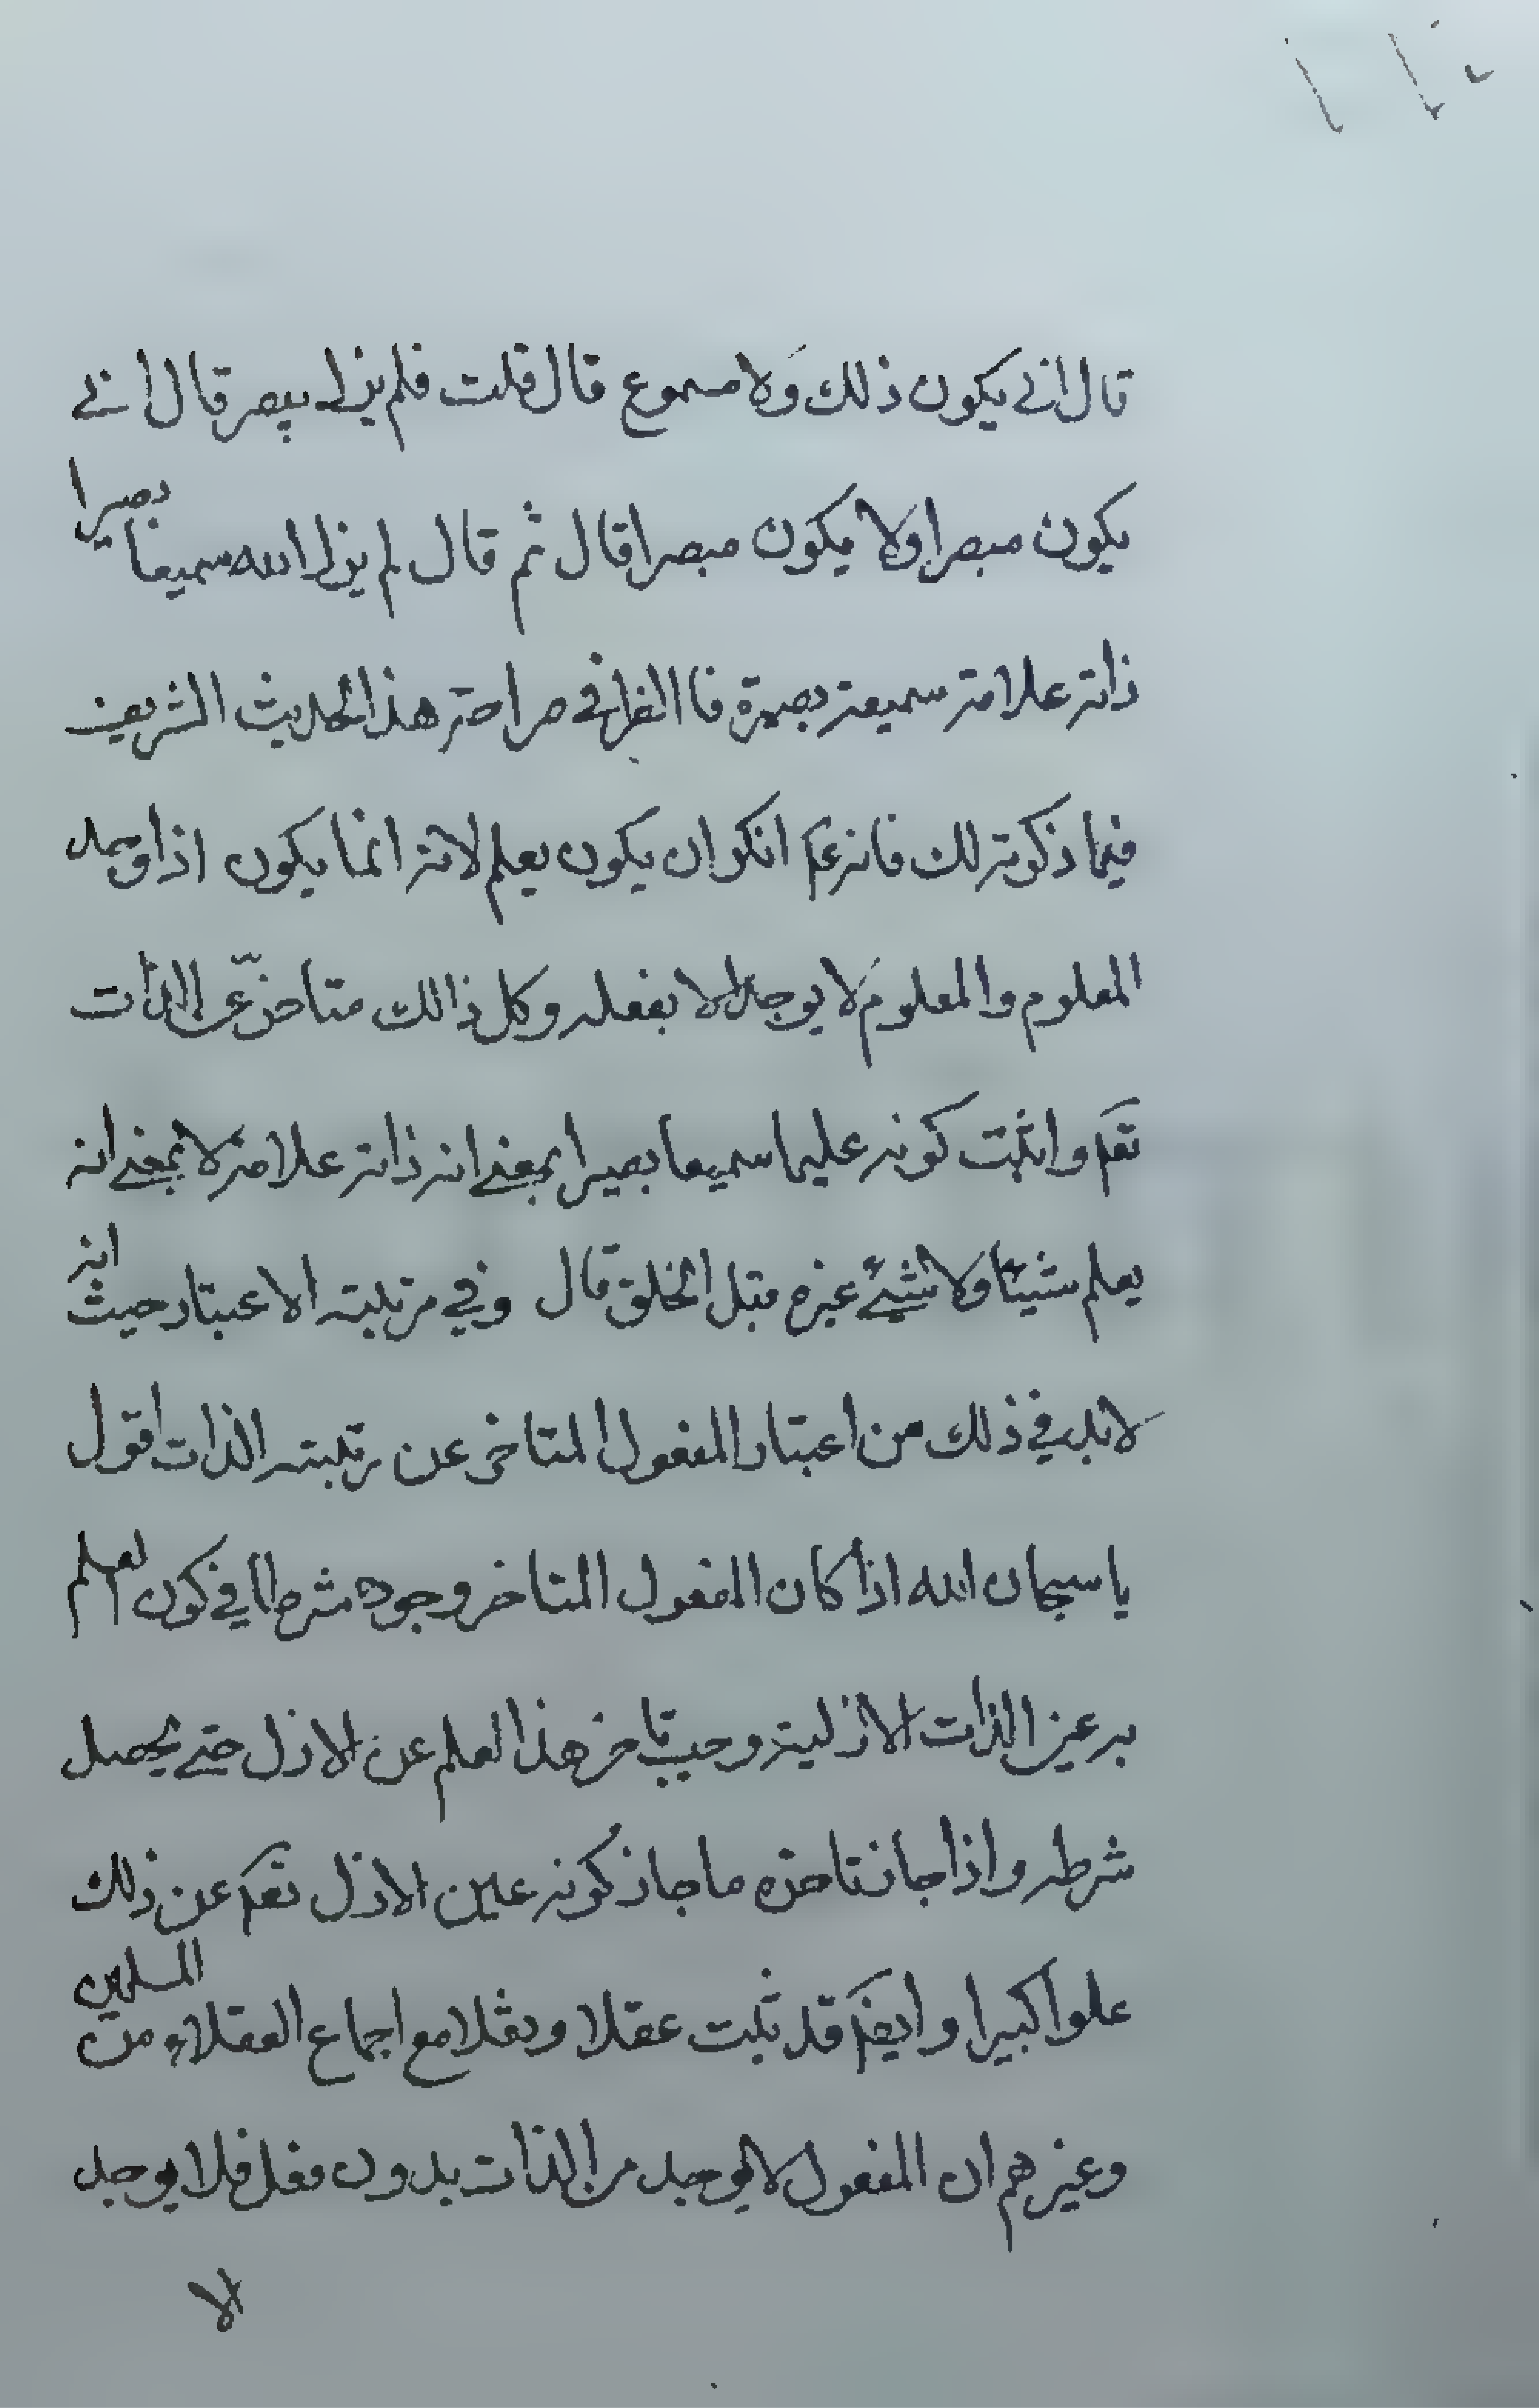 قال انى يكون ذلك ولا مسموع قال قلت فلم يزل يبصر قال انى
يكون مبصرا ولا يكون مبصرا قال ثم قال لم يزل الله سميعا بصيرا
ذاته علامة سميعة بصيرة فانظر في صراحة هذا الحديث الشريف
فيما ذكرته لك فانه ع انكر ان يكون يعلم لانه انما يكون اذا وجد
المعلوم والمعلوم لا يوجد الا بفعله وكل ذالك متاخر عن الذات
تعم واثبت كونه عليما سميعا بصيرا بمعنى انه ذاته علامة لا بمعنى انه
يعلم شيئا ولا شيئ غيره قبل الخلق قال وفي مرتبته الاعتبار حيث انه
لابد في ذلك من اعتبار المفعول المتاخر عن رتبته الذات اقول
يا سبحان الله اذا كان المفعول المتاخر وجوده شرطا في كون العلم
به عين الذات الازلية وجب تاخر هذا العلم عن الازل حتى يحصل
شرطه واذا جاز تاخره ما جاز كونه عين الازل تعم عن ذلك
علوا كبيرا وايضا قد ثبت عقلا ونقلا مع اجماع العقلاء من المسلمين
وغيرهم ان المفعول لا يوجد من الذات بدون فعل فلا يوجد
الا